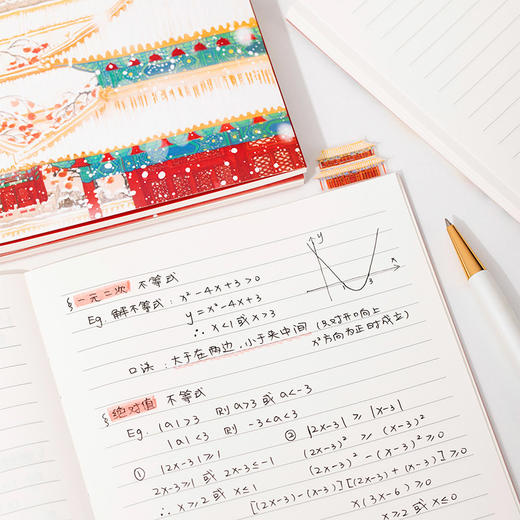 § 一元二次 不等式
Eg. 解不等式: x²-4x+3>0
y=x²-4x+3
∴ x<1或x>3
口诀: 大于在两边,小于夹中间 (只对开口向上
x²方向为正时成立)
y
x
3
§ 绝对值 不等式
Eg. |a|>3 则 a>3 或 a<-3
|a|<3 则 -3<a<3
① |2x-3|≥1
2x-3≥1 或 2x-3≤-1
∴ x≥2 或 x≤1
② |2x-3| ≥ |x-3|
(2x-3)² ≥ (x-3)²
(2x-3)² - (x-3)² ≥0
[(2x-3)-(x-3)][(2x-3)+(x-3)]≥0
x(3x-6)≥0
x≥2 或 x≤0